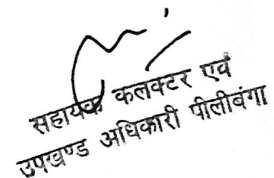 सहायक कलक्टर एवं
उपखण्ड अधिकारी पीलीबंगा